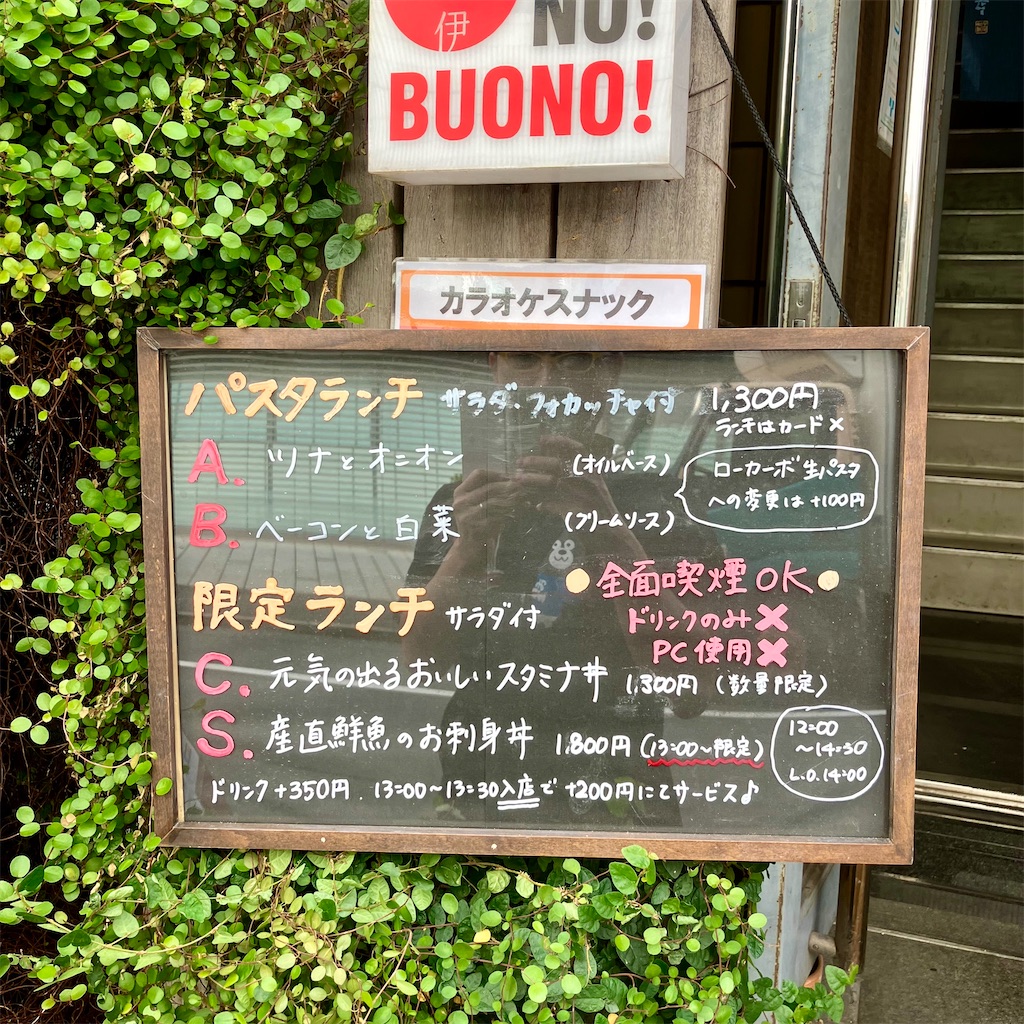 伊 NO!
BUONO!
カラオケスナック
パスタランチ サラダ・フォカッチャ付 1,300円
ランチはカード×
A. ツナとオニオン (オイルベース)
ローカーボ生パスタ
への変更は+100円
B. ベーコンと白菜 (クリームソース)
限定ランチ サラダ付
●全面喫煙OK●
ドリンクのみ×
PC使用×
C. 元気の出るおいしいスタミナ丼 1,300円 (数量限定)
S. 産直鮮魚のお刺身丼 1,800円 (13:00〜限定)
12:00
〜14:30
L.O.14:00
ドリンク+350円. 13:00〜13:30入店で+200円にてサービス♪